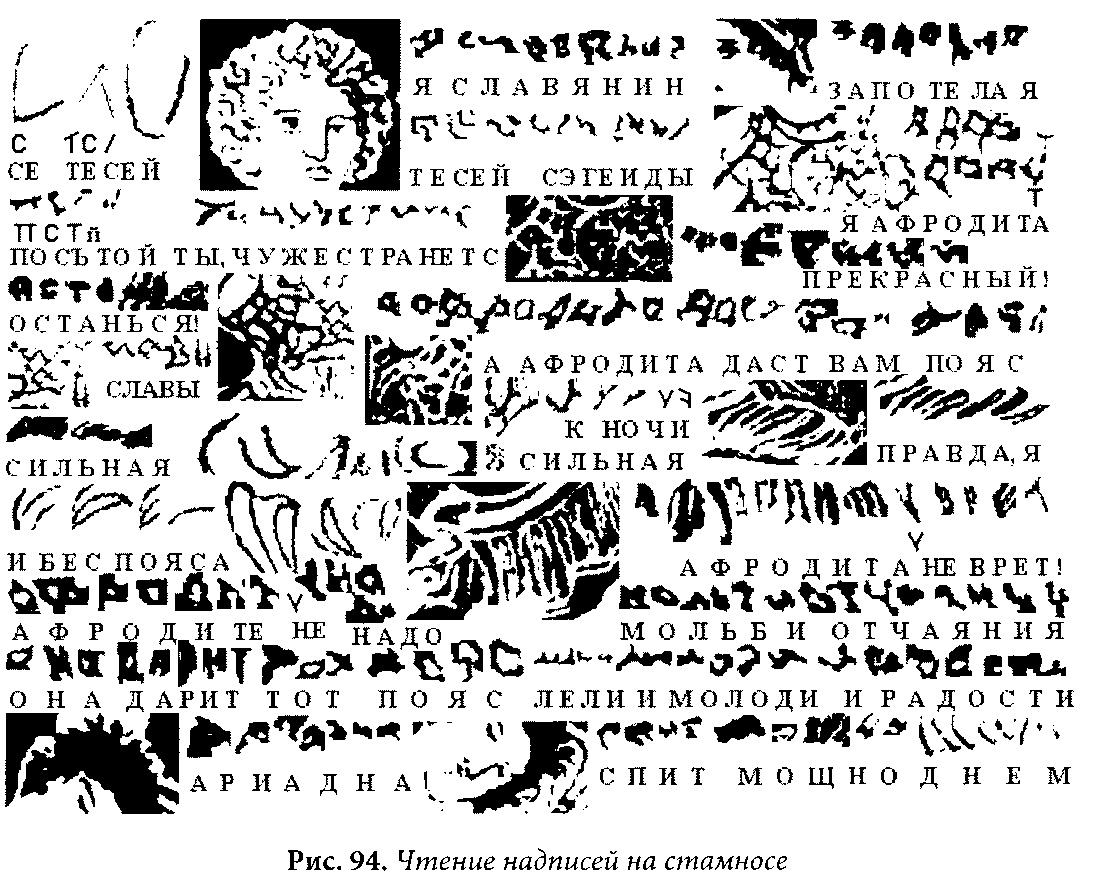 Я СЛАВЯНИН
ЗАПОТЕЛАЯ
С ТС/
СЕ ТЕСЕЙ
ТЕСЕЙ СЭГЕИДЫ
Т
Я АФРОДИТА
ПСТЙ
ПОСЪТОЙ ТЫ, ЧУЖЕСТРАНЕТС
ПРЕКРАСНЫЙ!
ОСТАНЬСЯ!
А АФРОДИТА ДАСТ ВАМ ПОЯС
СЛАВЫ
К НОЧИ
СИЛЬНАЯ
Я СИЛЬНАЯ
ПРАВДА, Я
И БЕС ПОЯСА
АФРОДИТА НЕ ВРЕТ!
АФРОДИТЕ НЕ НАДО
МОЛЬБ И ОТЧАЯНИЯ
ОНА ДАРИТ ТОТ ПОЯС ЛЕЛИ И МОЛОДИ И РАДОСТИ
АРИАДНА!
СПИТ МОЩНО ДНЕМ
Рис. 94. Чтение надписей на стамносе